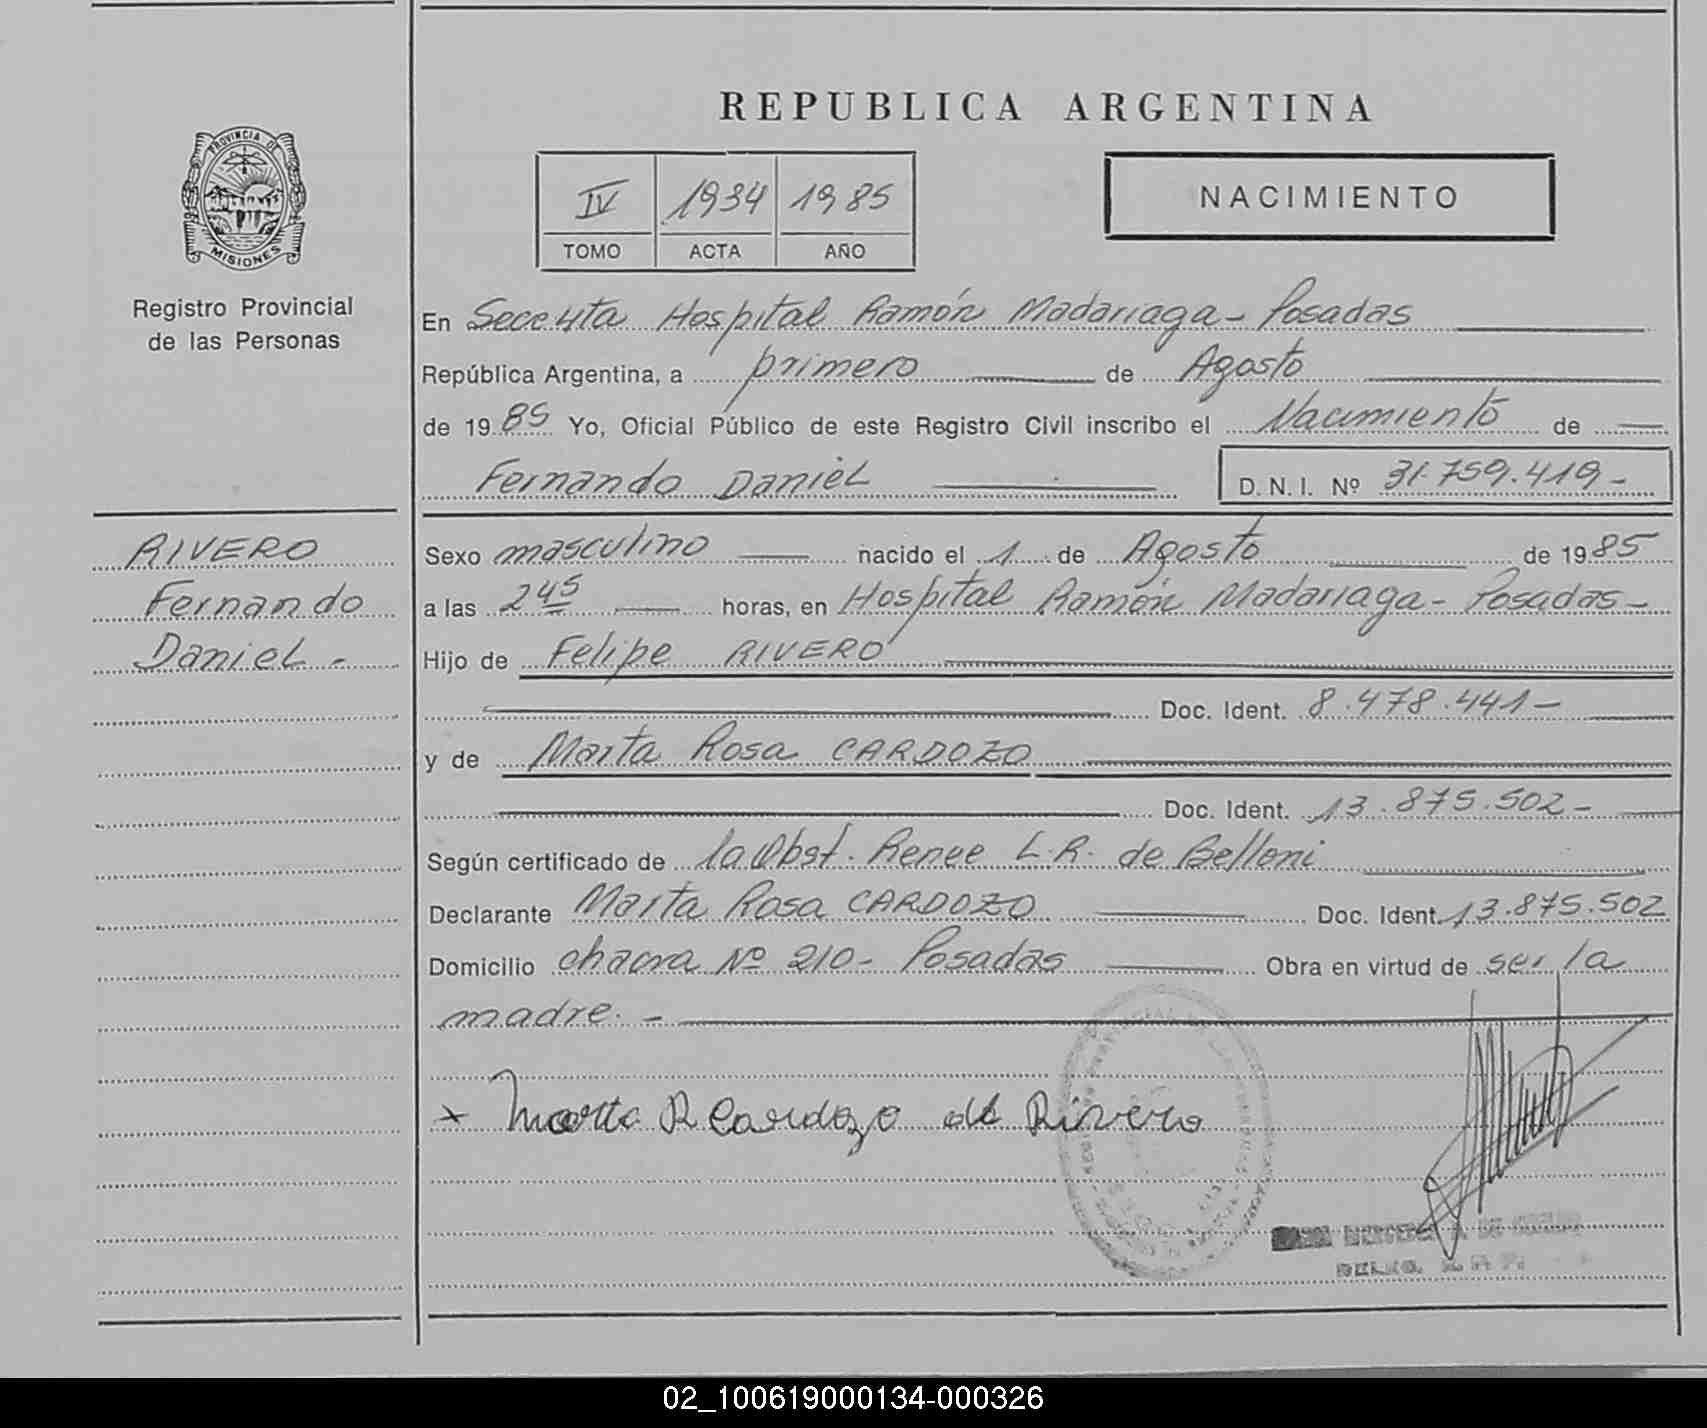 REPUBLICA ARGENTINA
PROVINCIA DE
MISIONES
Registro Provincial
de las Personas
IV 1934 1985
TOMO ACTA AÑO
NACIMIENTO
En Hospital Ramón Madariaga - Posadas
República Argentina, a primero de Agosto
de 1985 Yo, Oficial Público de este Registro Civil inscribo el Nacimiento de
Fernando Daniel D. N. I. Nº 31.759.419-
RIVERO
Fernando
Daniel -
Sexo masculino nacido el 1 de Agosto de 1985
a las 2 45 horas, en Hospital Ramón Madariaga - Posadas -
Hijo de Felipe RIVERO
Doc. Ident. 8.478.441-
y de Marta Rosa CARDOZO
Doc. Ident. 13.875.502-
Según certificado de la Obst. Renee L.R. de Belloni
Declarante Marta Rosa CARDOZO Doc. Ident. 13.875.502
Domicilio chacra Nº 210- Posadas Obra en virtud de ser la
madre. -
x Marta R Cardozo de Rivero
02_100619000134-000326